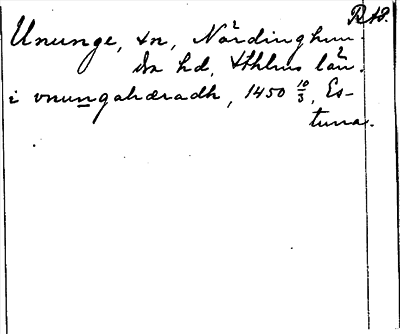 RAO.
Ununge, sn, Närdinghun-
dra hd, Sthlms län.
i vnungahæradh, 1450 10/3, Es-
tuna.